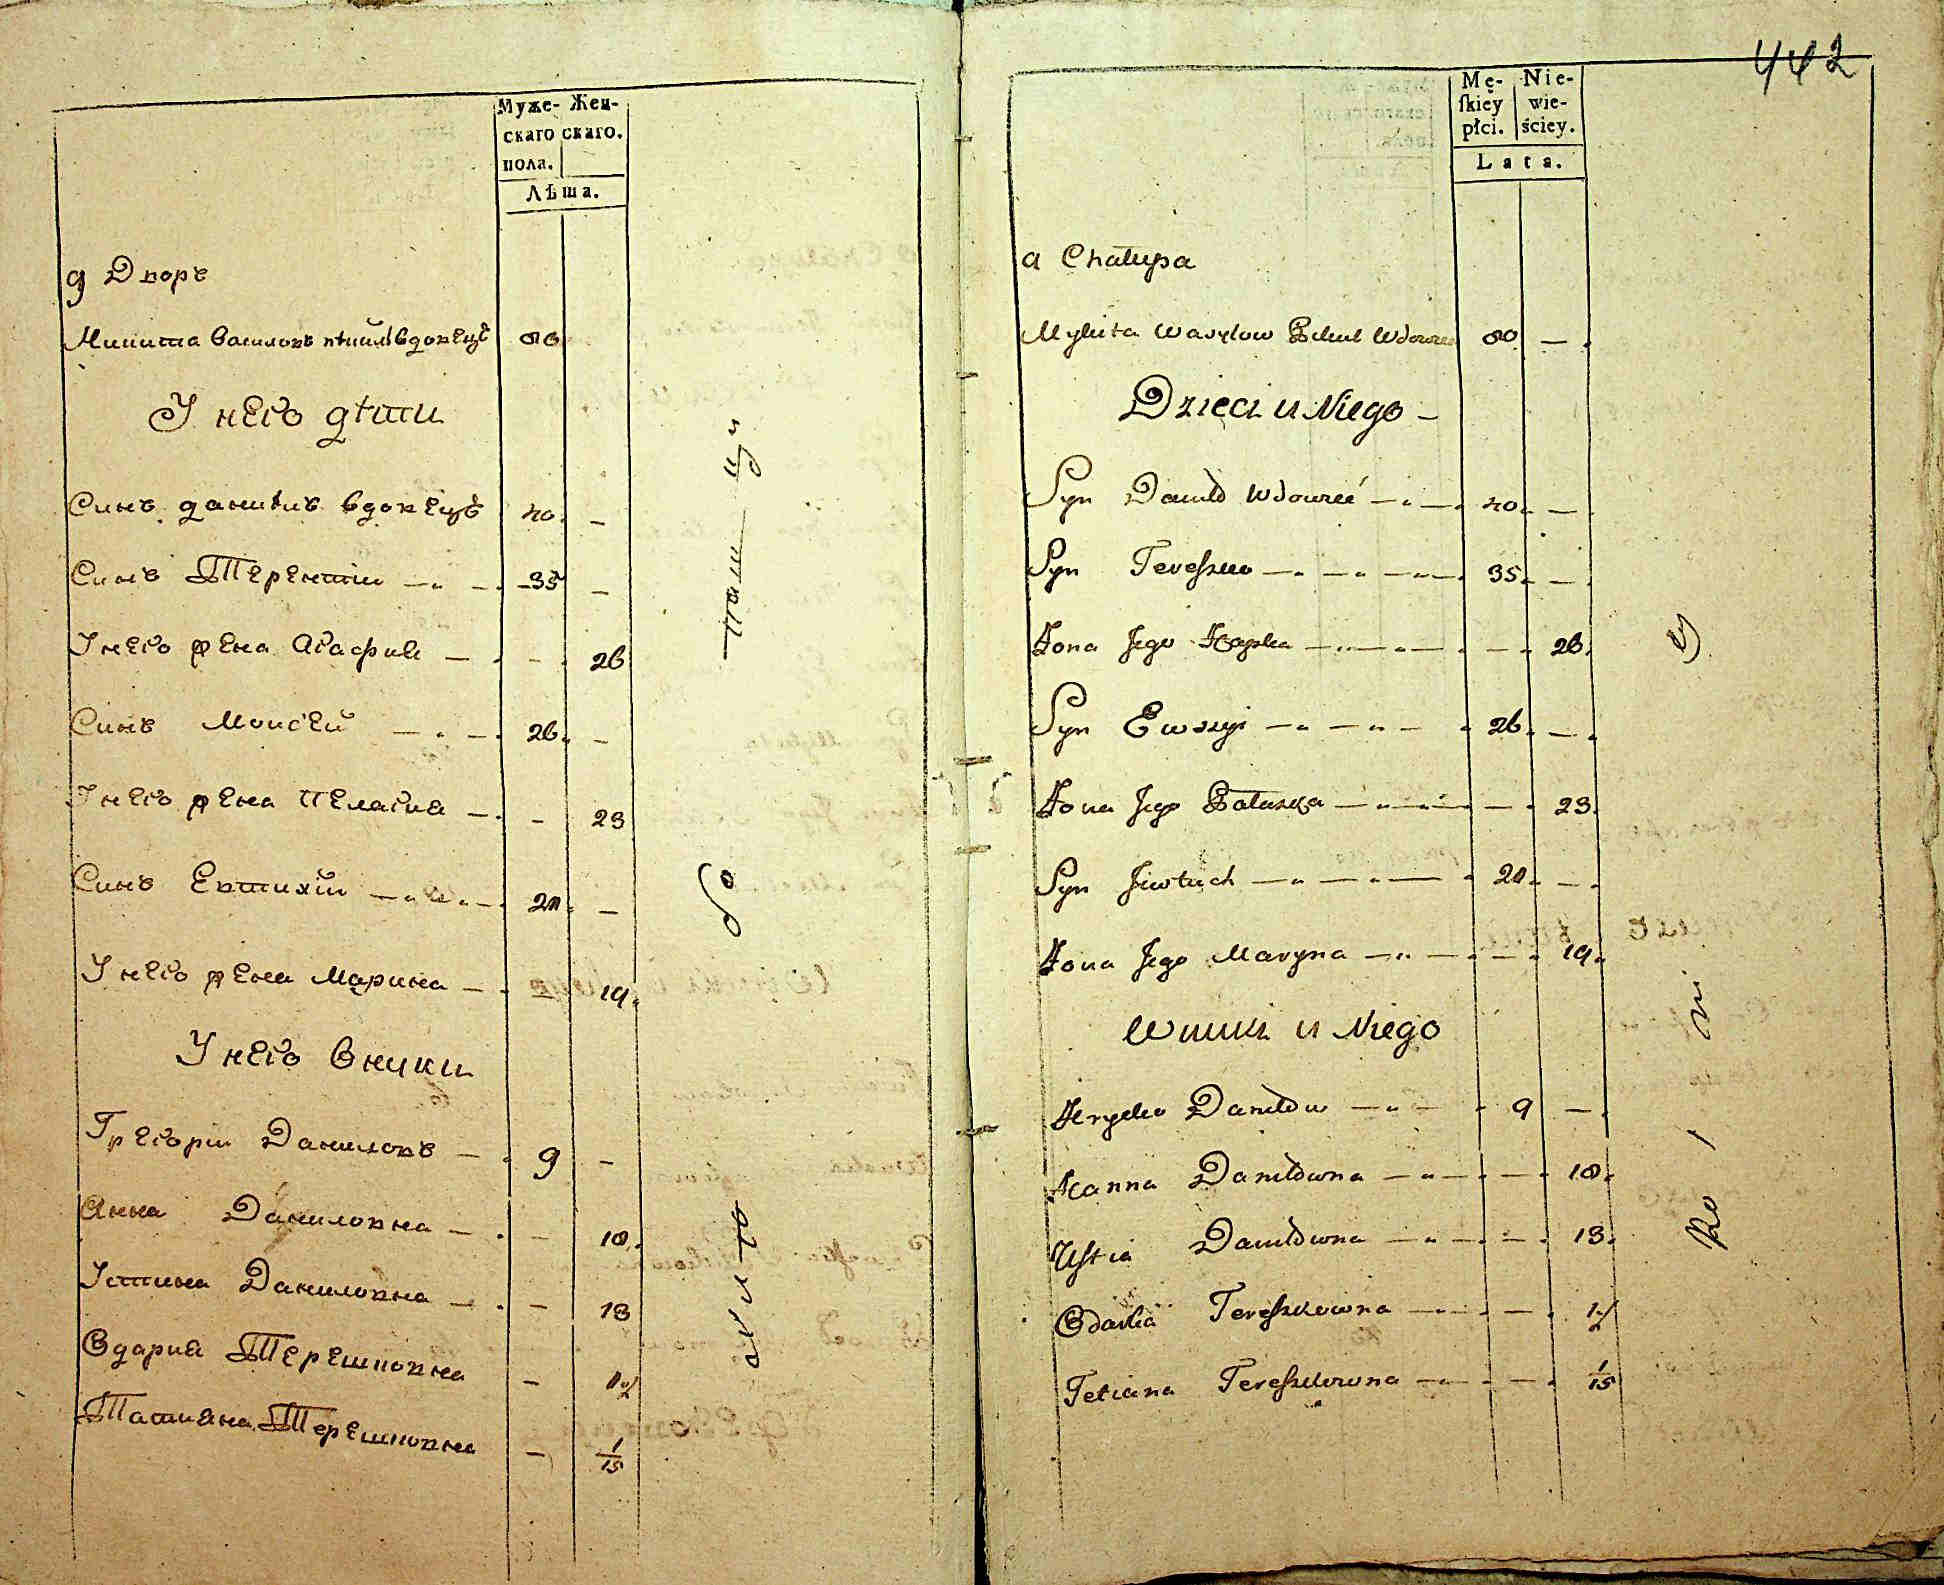 Муже- Жен-
скаго скаго.
пола.
Лѣта.
д Дворъ
Микита Василовъ вдовецъ 80
У него дѣти
Синъ даниилъ вдовецъ 40 —
Синъ Терентии — 35 —
У него жена Агафия — - 26
Синъ Моисей — 26 —
У него жена Пелагия — - 23
Синъ Евтихій — 20 —
У него жена Марина — - 19
У него внуки
Григорiи Даниловъ — 9 —
Анна Даниловна — - 18
Устина Даниловна — - 13
Одария Терешковна - 1½
Татияна Терешковна - 1/15
442
Mę- Nie-
ſkiey wie-
płci. ściey.
Lata.
a Chałupa
Mykita Wasylow Wdowiec 80 —
Dzieci u Niego —
Syn Daniło Wdowiec — 40 —
Syn Tereſzko — 35 —
Żona Jego Hapka — — 26
Syn Ewszyi — 26 —
Żona Jego Palaszka — — 23
Syn Jiwtuch — 20 —
Żona Jego Maryna — — 19
Wnuki u Niego
Hryćko Daniłow — 9 —
Hanna Daniłowna — — 18
Uſtia Daniłowna — — 13
Odarka Tereſzkowna — — 1½
Tetiana Tereſzkowna — — 1/15